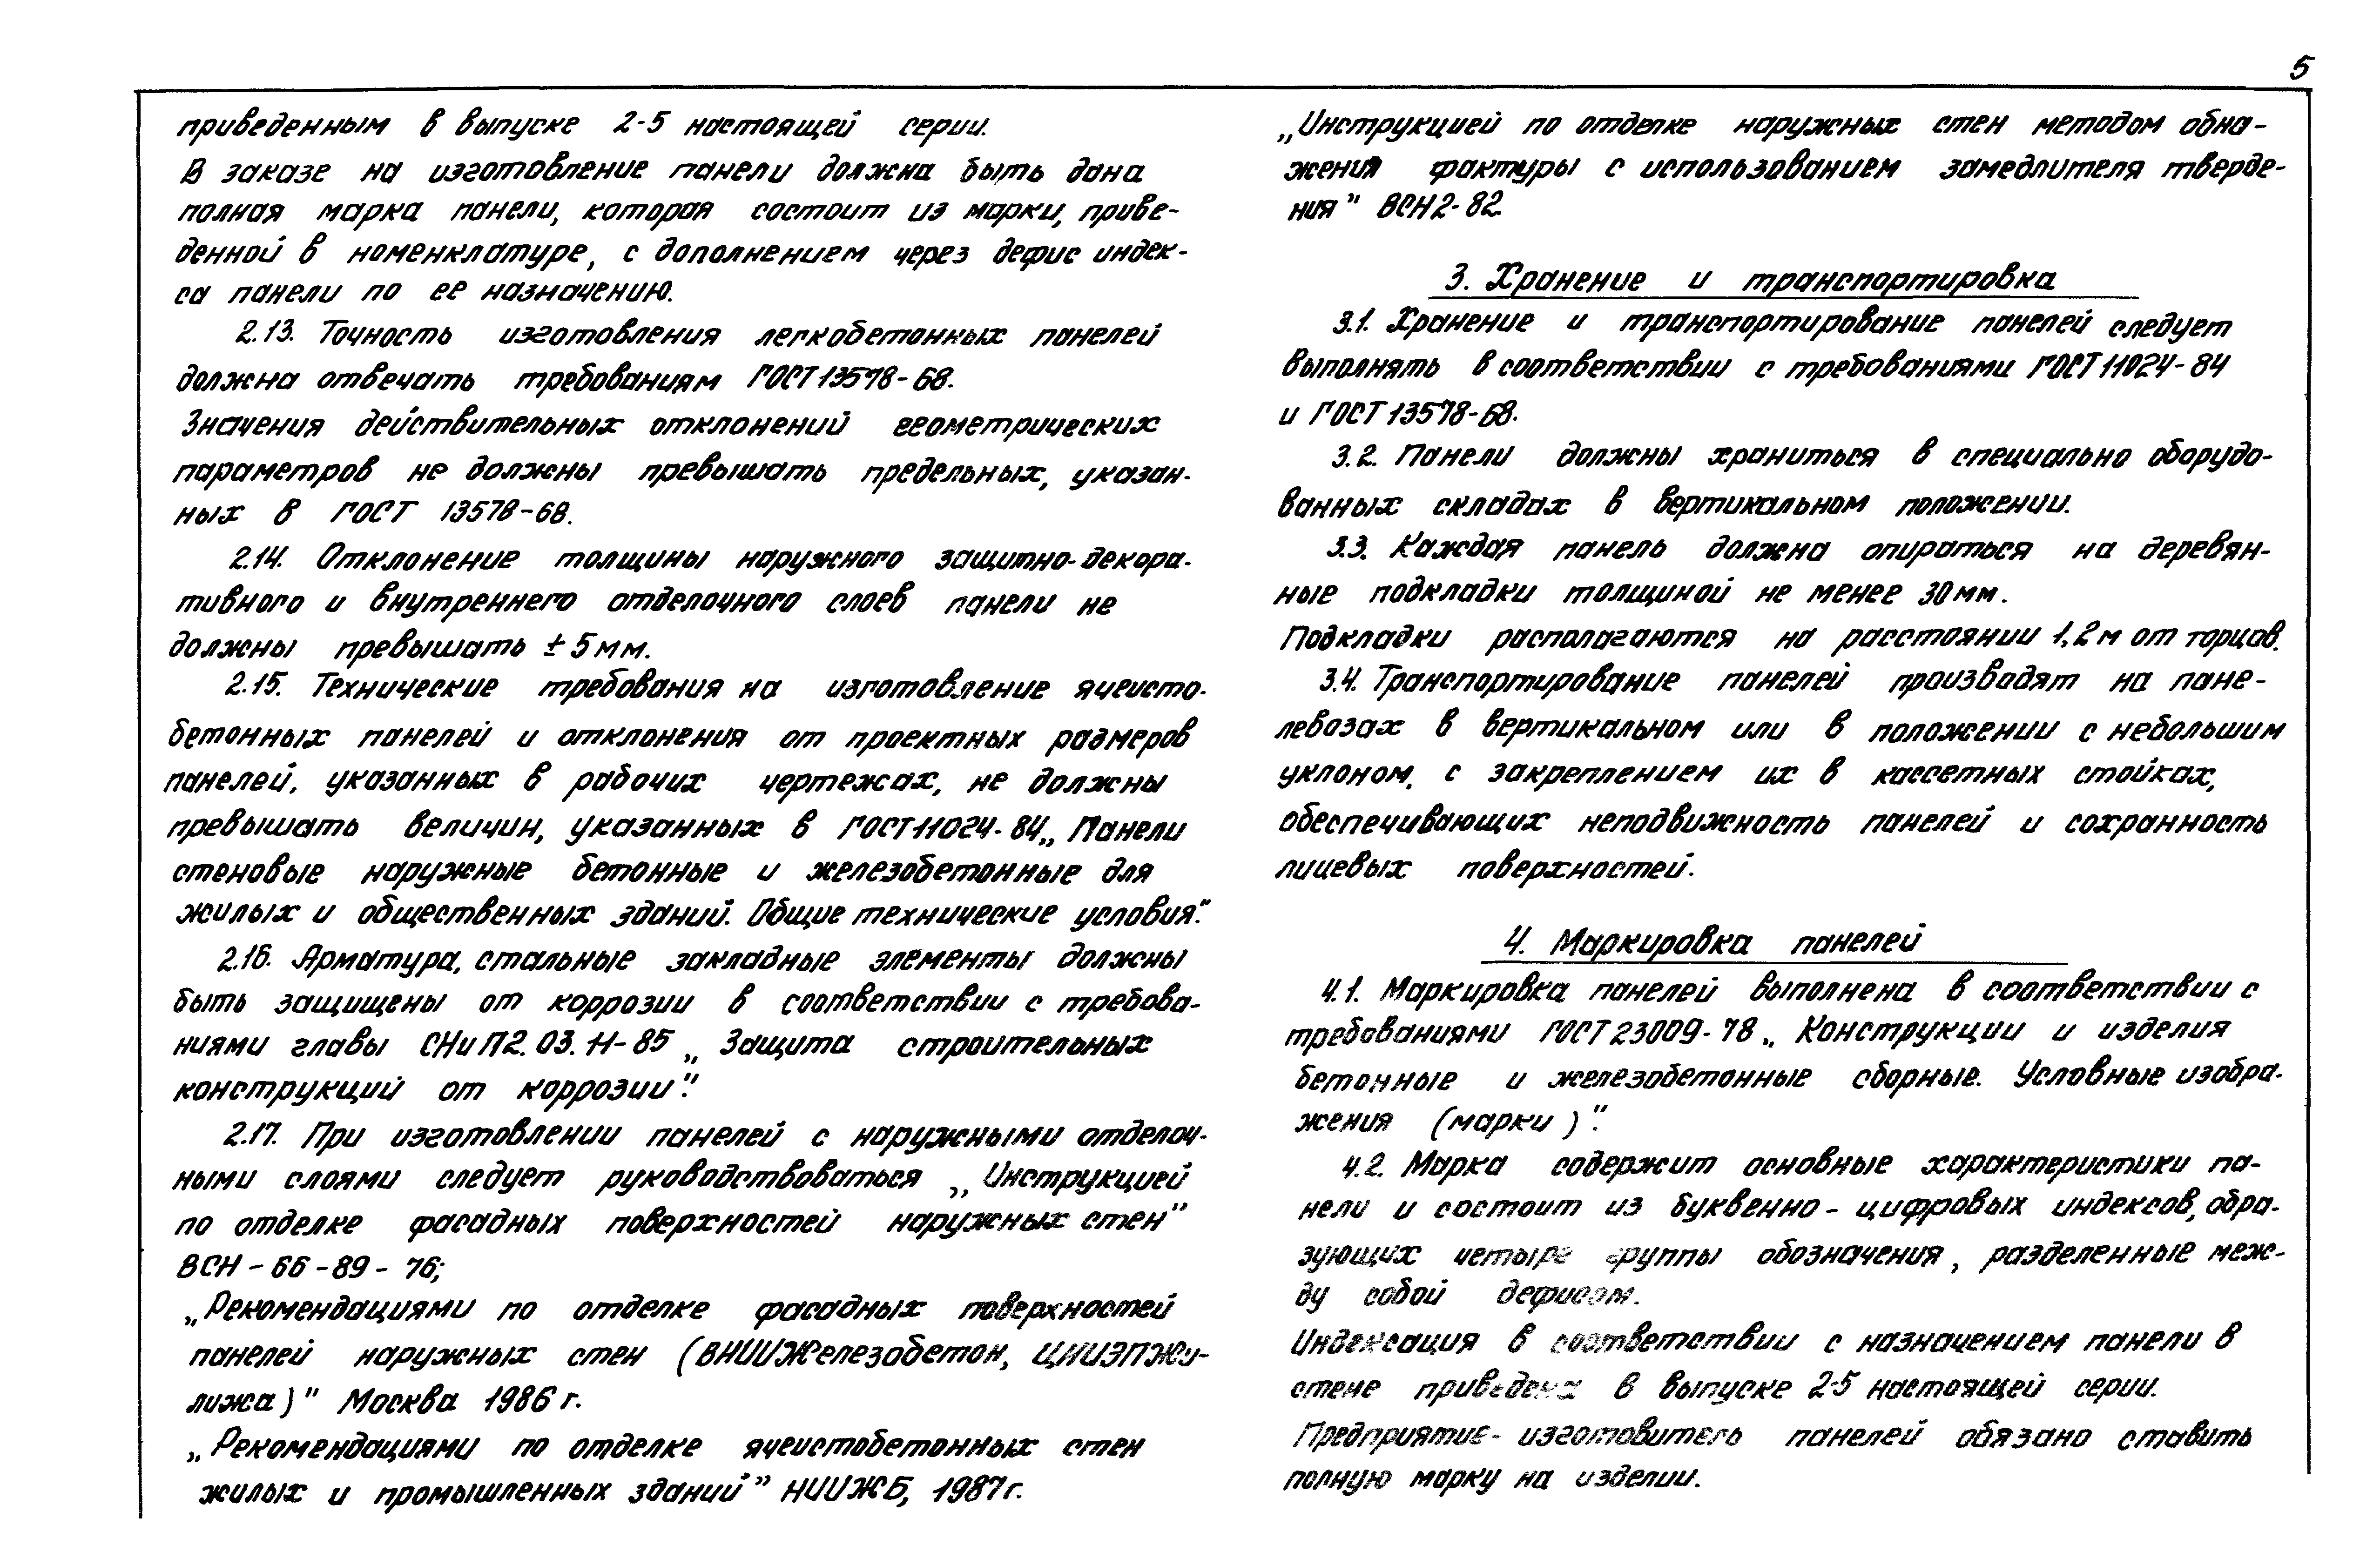 5
приведенным в выпуске 2-5 настоящей серии.
В заказе на изготовление панели должна быть дана
полная марка панели, которая состоит из марки, приве-
денной в номенклатуре, с дополнением через дефис индек-
са панели по ее назначению.
2.13. Точность изготовления легкобетонных панелей
должна отвечать требованиям ГОСТ 13578-68.
Значения действительных отклонений геометрических
параметров не должны превышать предельных, указан-
ных в ГОСТ 13578-68.
2.14. Отклонение толщины наружного защитно-декора-
тивного и внутреннего отделочного слоев панели не
должны превышать ± 5 мм.
2.15. Технические требования на изготовление ячеисто-
бетонных панелей и отклонения от проектных размеров
панелей, указанных в рабочих чертежах, не должны
превышать величин, указанных в ГОСТ 11024-84 „Панели
стеновые наружные бетонные и железобетонные для
жилых и общественных зданий. Общие технические условия".
2.16. Арматура, стальные закладные элементы должны
быть защищены от коррозии в соответствии с требова-
ниями главы СНиП 2.03.11-85 „Защита строительных
конструкций от коррозии".
2.17. При изготовлении панелей с наружными отделоч-
ными слоями следует руководствоваться „Инструкцией
по отделке фасадных поверхностей наружных стен"
ВСН-66-89-76;
„Рекомендациями по отделке фасадных поверхностей
панелей наружных стен (ВНИИЖелезобетон, ЦНИЭПЖи-
лижа)" Москва 1986 г.
„Рекомендациями по отделке ячеистобетонных стен
жилых и промышленных зданий" НИИЖБ, 1987 г.
„Инструкцией по отделке наружных стен методом обна-
жения фактуры с использованием замедлителя тверде-
ния" ВСН 2-82.
3. Хранение и транспортировка
3.1. Хранение и транспортирование панелей следует
выполнять в соответствии с требованиями ГОСТ 11024-84
и ГОСТ 13578-68.
3.2. Панели должны храниться в специально оборудо-
ванных складах в вертикальном положении.
3.3. Каждая панель должна опираться на деревян-
ные подкладки толщиной не менее 30 мм.
Подкладки располагаются на расстоянии 1,2 м от торцов.
3.4. Транспортирование панелей производят на пане-
левозах в вертикальном или в положении с небольшим
уклоном, с закреплением их в кассетных стойках,
обеспечивающих неподвижность панелей и сохранность
лицевых поверхностей.
4. Маркировка панелей
4.1. Маркировка панелей выполнена в соответствии с
требованиями ГОСТ 23009-78 „Конструкции и изделия
бетонные и железобетонные сборные. Условные изобра-
жения (марки)".
4.2. Марка содержит основные характеристики па-
нели и состоит из буквенно-цифровых индексов, обра-
зующих четыре группы обозначения, разделенные меж-
ду собой дефисом.
Индексация в соответствии с назначением панели в
стене приведена в выпуске 2-5 настоящей серии.
Предприятие-изготовитель панелей обязано ставить
полную марку на изделии.